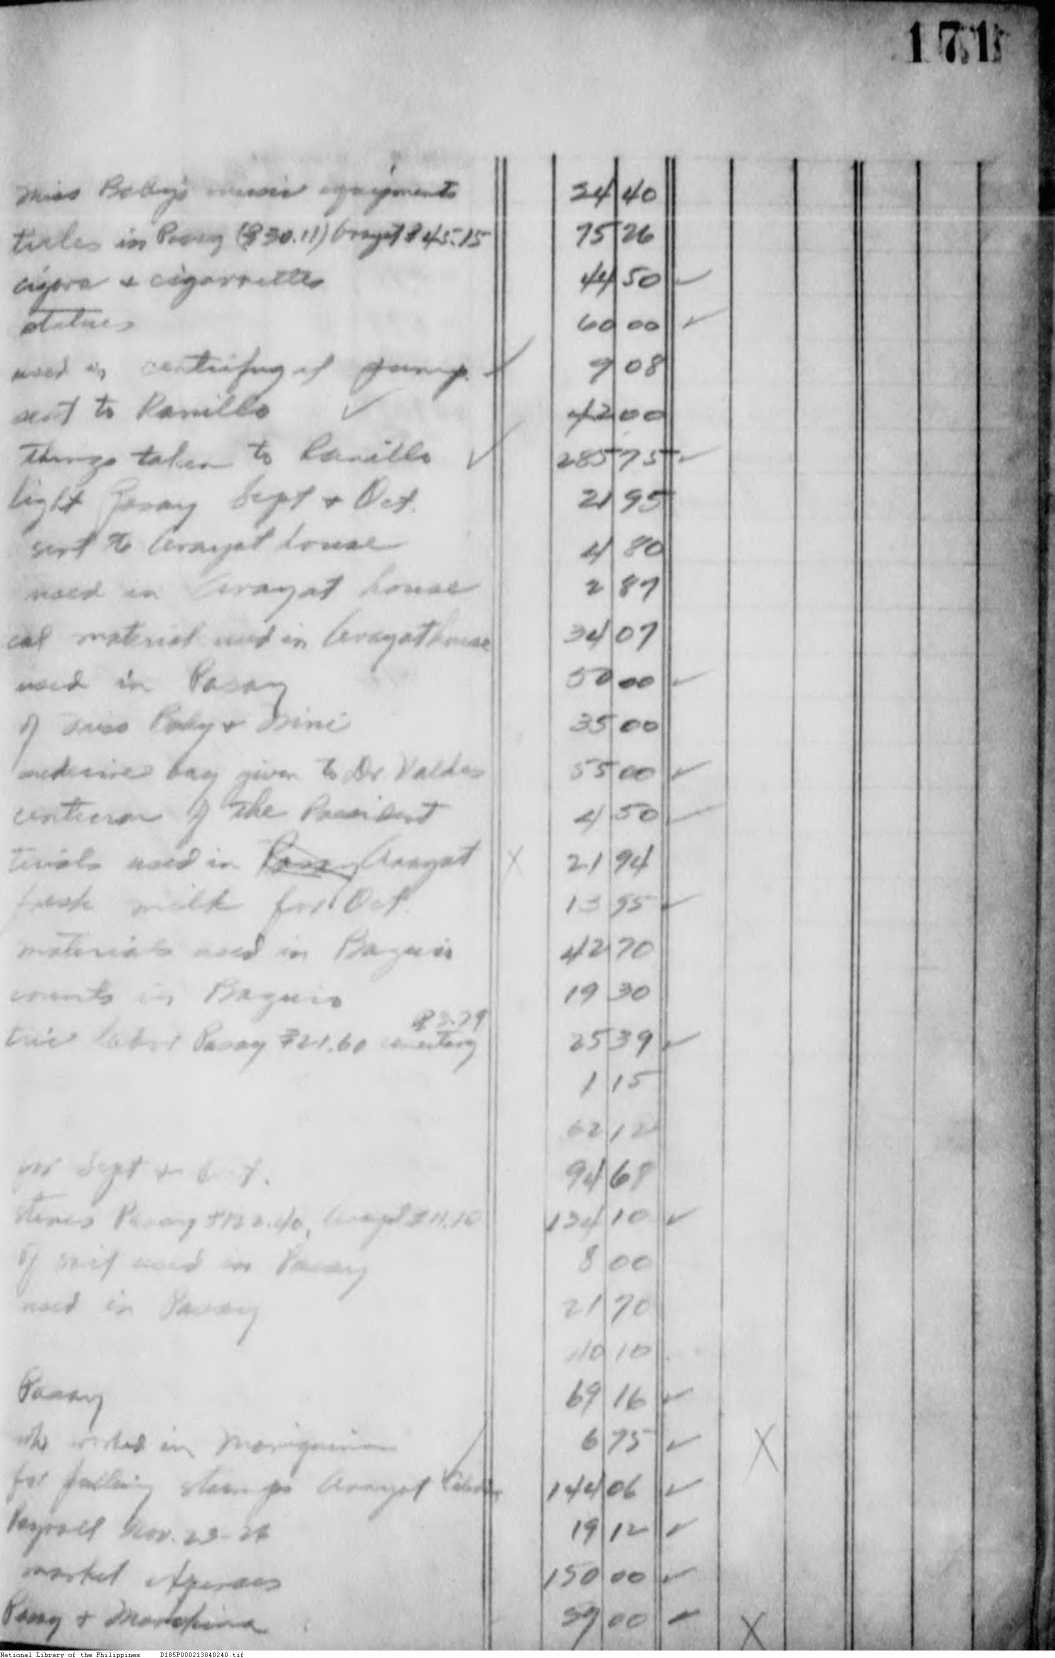 171
Miss Baby's music equipments 34 40
in Pasay (₱30.11) Arayat ₱45.15 75 26
cigars & cigarrettes 44 50
statues 60 00
used in centrifugal pump 9 08
sent to Ramillo 42 00
things taken to Ramillo 285 75
light Pasay Sept & Oct. 21 95
sent to Arayat house 4 80
used in Arayat house 2 87
cal material used in Arayat house 34 07
used in Pasay 50 00
of Miss Baby & Nini 35 00
medicine bag given to Dr Valdes 55 00
of the President 4 50
terials used in Pasay Arayat 21 94
fresh milk for Oct. 13 95
materials used in Baguio 42 70
counts in Baguio 19 30
₱3.79
tric labor Pasay ₱21.60 cemetery 25 39
1 15
62 12
for Sept & Oct. 94 68
Pasay ₱122.40, Arayat ₱11.10 134 10
of used in Pasay 8 00
used in Pasay 21 70
10 10
Pasay 69 16
who worked in Mariquina 6 75
for pulling stumps Arayat 144 06
Payroll Nov. 23-26 19 12
market expenses 150 00
Pasay & Marikina 59 00
National Library of the Philippines D185P000213040240.tif